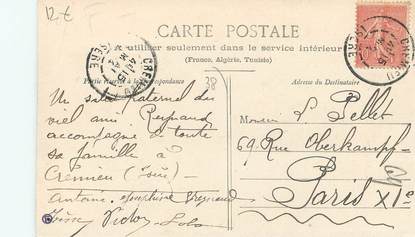 12.€
CARTE POSTALE
A utiliser seulement dans le service intérieur
(France, Algérie, Tunisie)
Partie réservée à la Correspondance
Adresse du Destinataire
38
CREMIEU
ISÈRE
CREMIEU
ISÈRE
Un salut fraternel du
viel ami Reynaud
accompagné de toute
sa famille à
Crémieu (Isère)
Antoine. Joséphine Reynaud
Victor
Monsieur L Pellet
69 Rue Oberkampf
Paris XIe